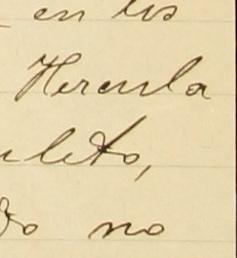 en los
Hercula
uleto,
do no